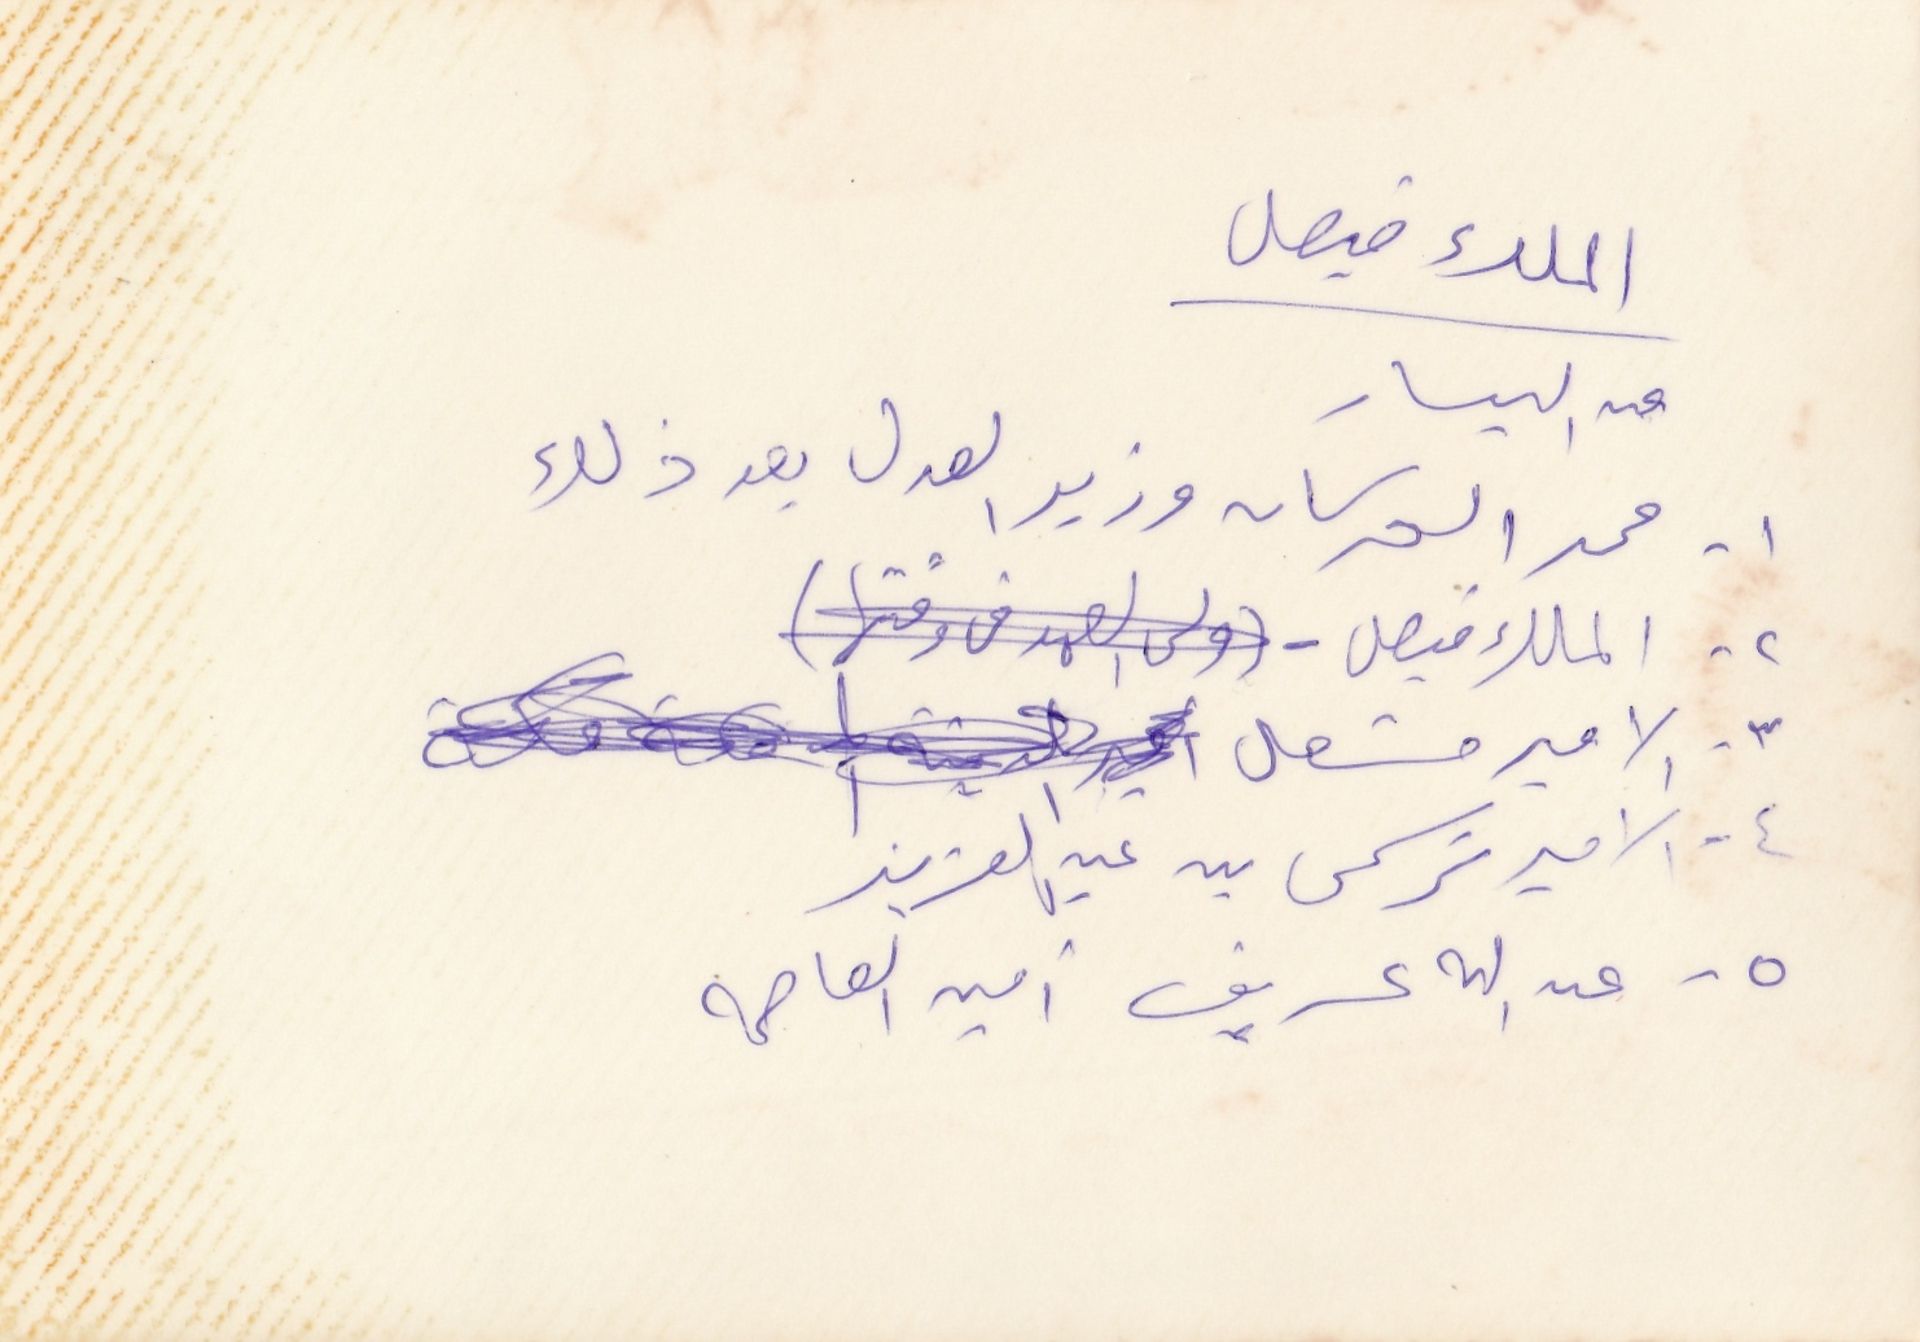 الملك فيصل
من اليسار
١- محمد الحركان وزير العدل بعد ذلك
٢- الملك فيصل - (ولى العهد فى وقتها)
٣- الامير مشعل
٤- الامير تركى بن عبدالعزيز
٥- عبد الله عريف أمين العاصمة